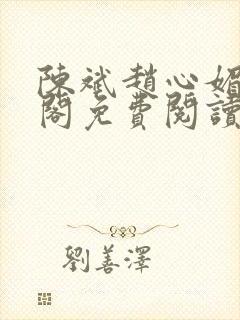 陳斌趙心媚
閣免費閱讀
劉善澤